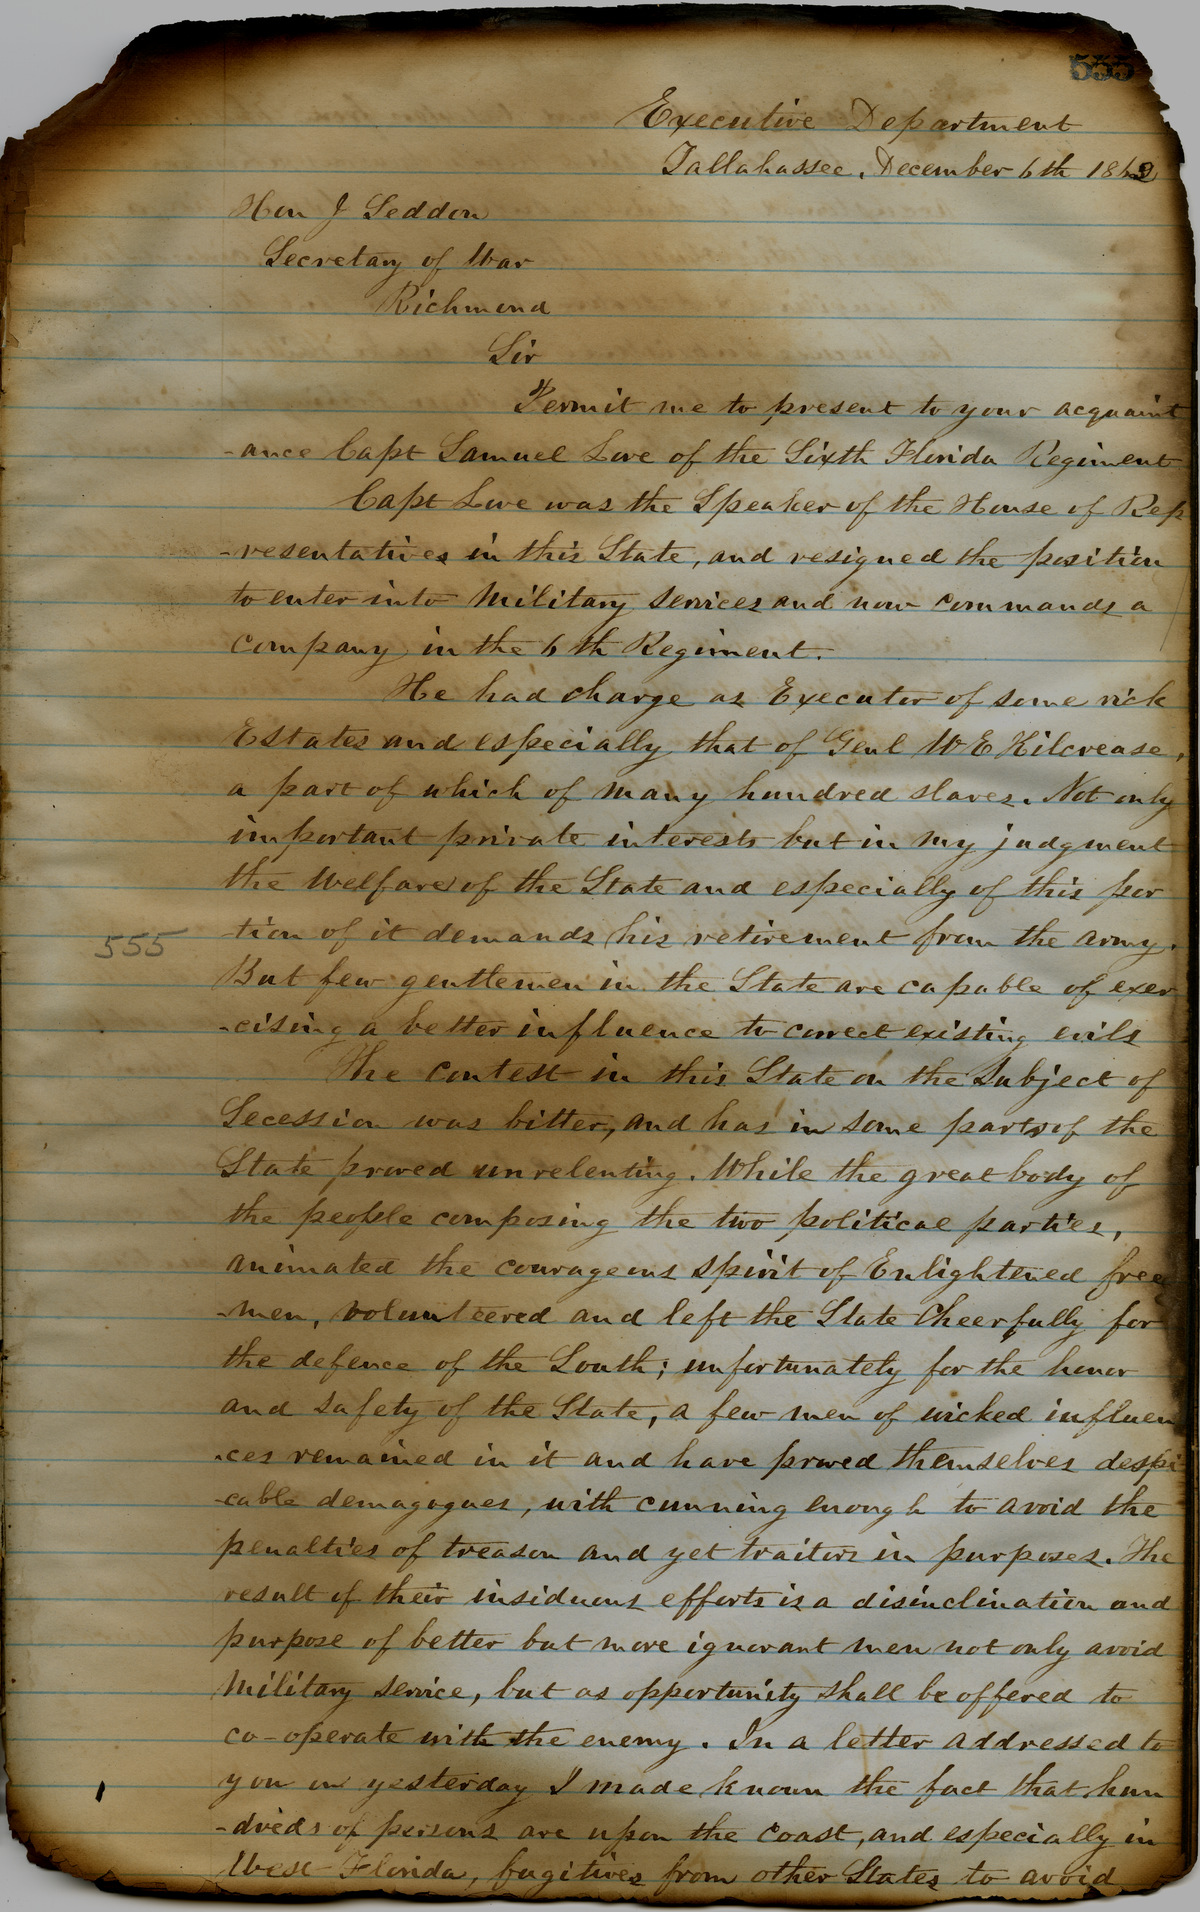 555
Executive Department
Tallahassee, December 6th 1862
Hon J Seddon
Secretary of War
Richmond
Sir
Permit me to present to your acquaint
-ance Capt Samuel Love of the Sixth Florida Regiment
Capt Love was the Speaker of the House of Rep
-resentatives in this State, and resigned the position
to enter into Military services and now commands a
company in the 6th Regiment.
He had charge as Executor of some rich
Estates and especially that of Genl W E Kilcrease,
a part of which of many hundred slaves. Not only
important private interests but in my judgment
the Welfare of the State and especially of this por
-tion of it demands his retirement from the army.
555
But few gentlemen in the State are capable of exer
-cising a better influence to correct existing evils
The contest in this State on the Subject of
Secession was bitter, and has in some parts of the
State proved unrelenting. While the great body of
the people composing the two political parties,
animated the courageous spirit of Enlightened free
-men, volunteered and left the State Cheerfully for
the defence of the South; unfortunately for the honor
and safety of the State, a few men of wicked influen
-ces remained in it and have proved themselves despi
-cable demagogues, with cunning enough to avoid the
penalties of treason and yet traitors in purposes. The
result of their insiduous efforts is a disinclination and
purpose of better but more ignorant men not only avoid
Military service, but as opportunity shall be offered to
co-operate with the enemy. In a letter addressed to
you on yesterday I made known the fact that hun
-dreds of persons are upon the coast, and especially in
West Florida, fugitives from other States to avoid